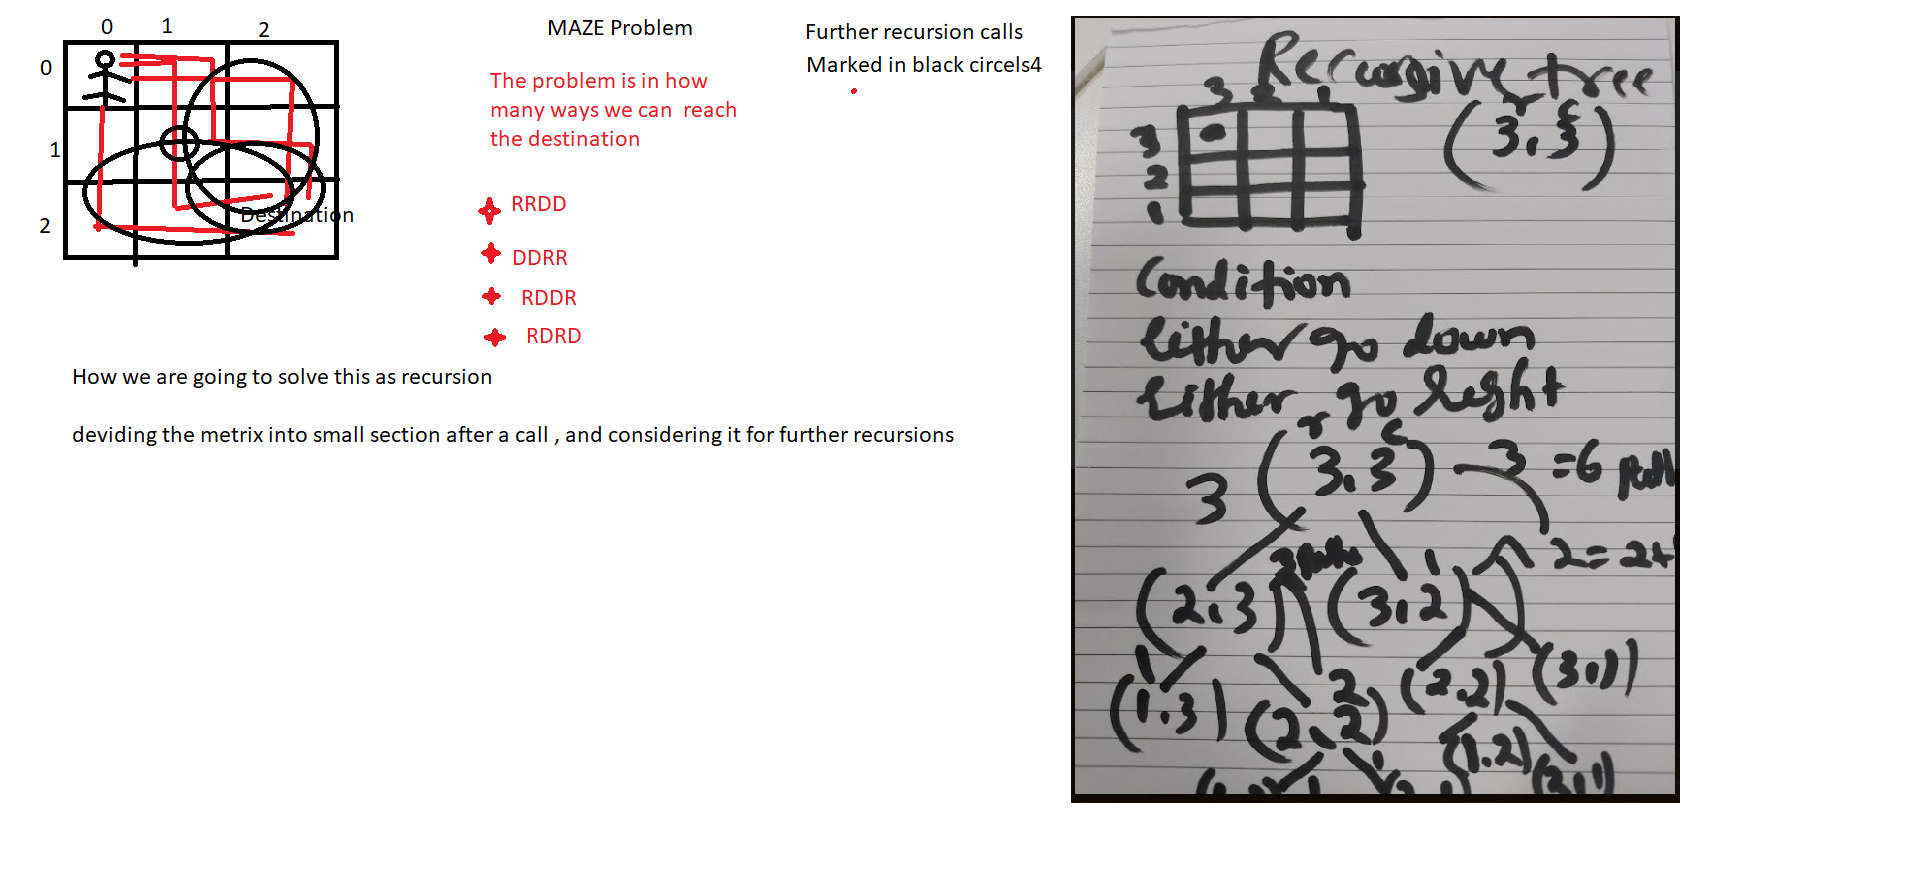 0 1 2
0
1
2
Destination
MAZE Problem
The problem is in how
many ways we can reach
the destination
RRDD
DDRR
RDDR
RDRD
Further recursion calls
Marked in black circels4
How we are going to solve this as recursion
deviding the metrix into small section after a call , and considering it for further recursions
Recursive tree
3 2 1
r c
(3,3)
3
2
1
Condition
Either go down
Either go
r c
3 (3,3) 3 =6
2 = 2+
(2,3) (3,2) 1
1 (1,3) (2,2) 2 (2,2) (3,1)
(1,2)
1 1